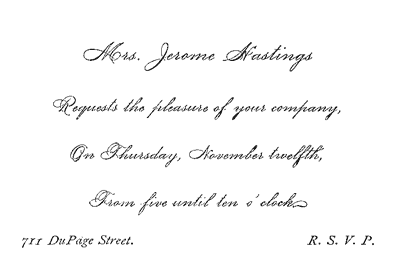 Mrs. Jerome Hastings
Requests the pleasure of your company,
On Thursday, November twelfth,
From five until ten o'clock.
711 DuPage Street. R. S. V. P.